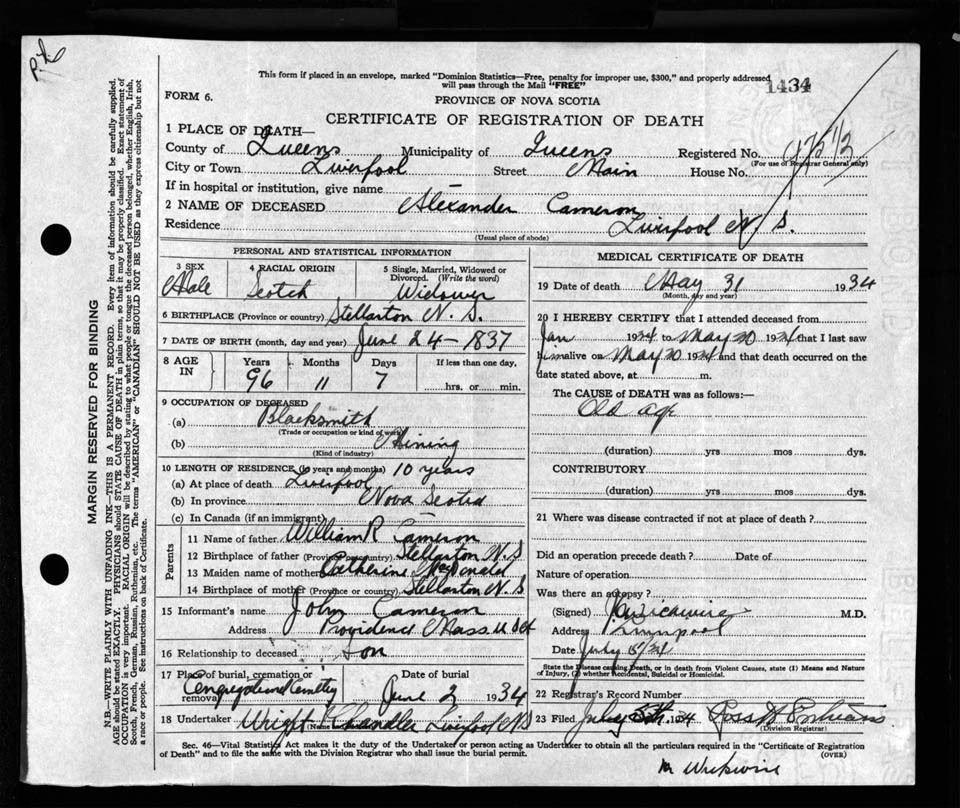 This form if placed in an envelope, marked "Dominion Statistics—Free, penalty for improper use, $300," and properly addressed
will pass through the Mail "FREE"
1434
FORM 6.
PROVINCE OF NOVA SCOTIA
CERTIFICATE OF REGISTRATION OF DEATH
1 PLACE OF DEATH—
County of Queens Municipality of Queens Registered No.
(For use of Registrar General only)
City or Town Liverpool Street Main House No.
If in hospital or institution, give name —
2 NAME OF DECEASED Alexander Cameron
Residence Liverpool N S.
(Usual place of abode)
PERSONAL AND STATISTICAL INFORMATION
3 SEX Male
4 RACIAL ORIGIN Scotch
5 Single, Married, Widowed or Divorced. (Write the word) Widower
6 BIRTHPLACE (Province or country) Stellarton N. S.
7 DATE OF BIRTH (month, day and year) June 24 - 1837
8 AGE IN Years 96 Months 11 Days 7 If less than one day, hrs. or min.
9 OCCUPATION OF DECEASED
(a) Blacksmith
(Trade or occupation or kind of work)
(b) Mining
(Kind of industry)
10 LENGTH OF RESIDENCE (In years and months) 10 years
(a) At place of death Liverpool
(b) In province Nova Scotia
(c) In Canada (if an immigrant) —
Parents
11 Name of father William R Cameron
12 Birthplace of father (Province or country) Stellarton N. S
13 Maiden name of mother Catherine McDonald
14 Birthplace of mother (Province or country) Stellarton N. S
15 Informant's name John Cameron
Address Providence Mass.
16 Relationship to deceased son
17 Place of burial, cremation or removal Congregational Cemetery
Date of burial June 2 1934
18 Undertaker Wright Chandler Liverpool NS
MEDICAL CERTIFICATE OF DEATH
19 Date of death May 31 1934
(Month, day and year)
20 I HEREBY CERTIFY that I attended deceased from
Jan 1934 to May 30 1934 that I last saw
him alive on May 30 1934 and that death occurred on the
date stated above, at m.
The CAUSE of DEATH was as follows:—
Old age
(duration) yrs mos dys.
CONTRIBUTORY
(duration) yrs mos dys.
21 Where was disease contracted if not at place of death?
Did an operation precede death? Date of
Nature of operation
Was there an autopsy?
(Signed) Wickwire M.D.
Address Liverpool
Date July 5/34
State the Disease causing Death, or in death from Violent Causes, state (1) Means and Nature
of Injury, (2) whether Accidental, Suicidal or Homicidal.
22 Registrar's Record Number
23 Filed July 5th. 34
(Division Registrar)
Sec. 46—Vital Statistics Act makes it the duty of the Undertaker or person acting as Undertaker to obtain all the particulars required in the "Certificate of Registration
of Death" and to file the same with the Division Registrar who shall issue the burial permit.
(OVER)
Wickwire
MARGIN RESERVED FOR BINDING
N.B.—WRITE PLAINLY WITH UNFADING INK—THIS IS A PERMANENT RECORD. Every item of information should be carefully supplied.
AGE should be stated EXACTLY. PHYSICIANS should STATE CAUSE OF DEATH in plain terms, so that it may be properly classified. Exact statement of
OCCUPATION is very important. RACIAL ORIGIN will be described by stating to what people or tongue the deceased person belonged, whether English, Irish,
Scotch, French, German, Russian, Ruthenian, etc. The terms "AMERICAN" or "CANADIAN" SHOULD NOT BE USED as they express citizenship but not
a race or people. See instructions on back of Certificate.